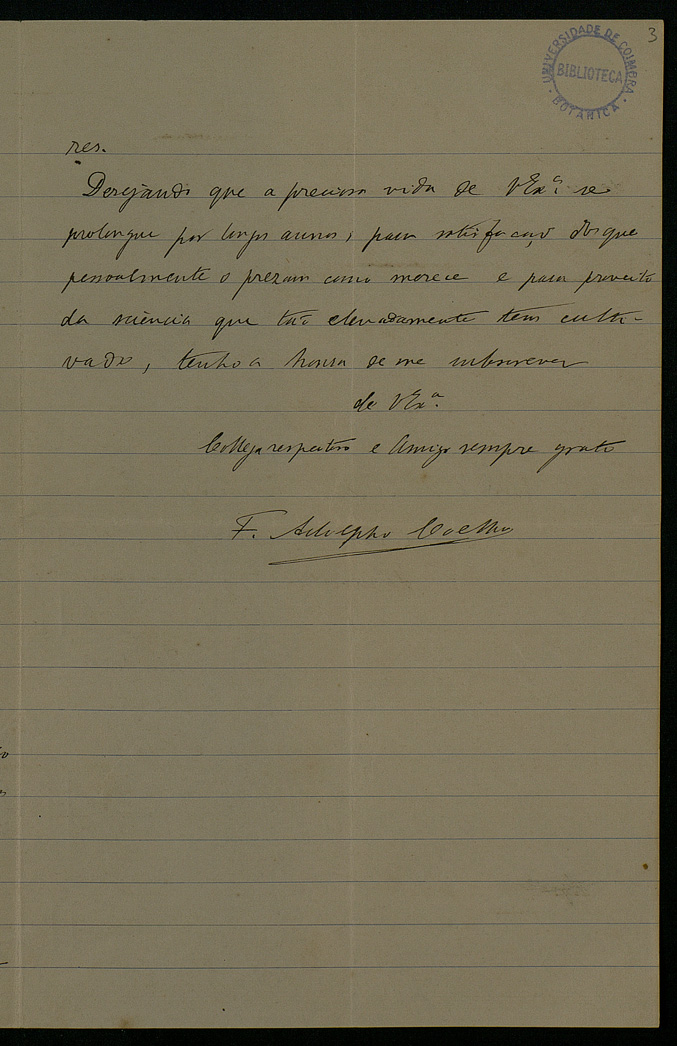 3
UNIVERSIDADE DE COIMBRA
BIBLIOTECA
BOTANICA
res.
Desejando que a preciosa vida de V Exª. se
prolongue por longos annos, para satisfação dos que
pessoalmente o prezam como merece e para proveito
da sciencia que tão elevadamente tem culti-
vado, tenho a honra de me subscrever
de V Exª.
Collega respeitoso e Amigo sempre grato
F. Adolpho Coelho